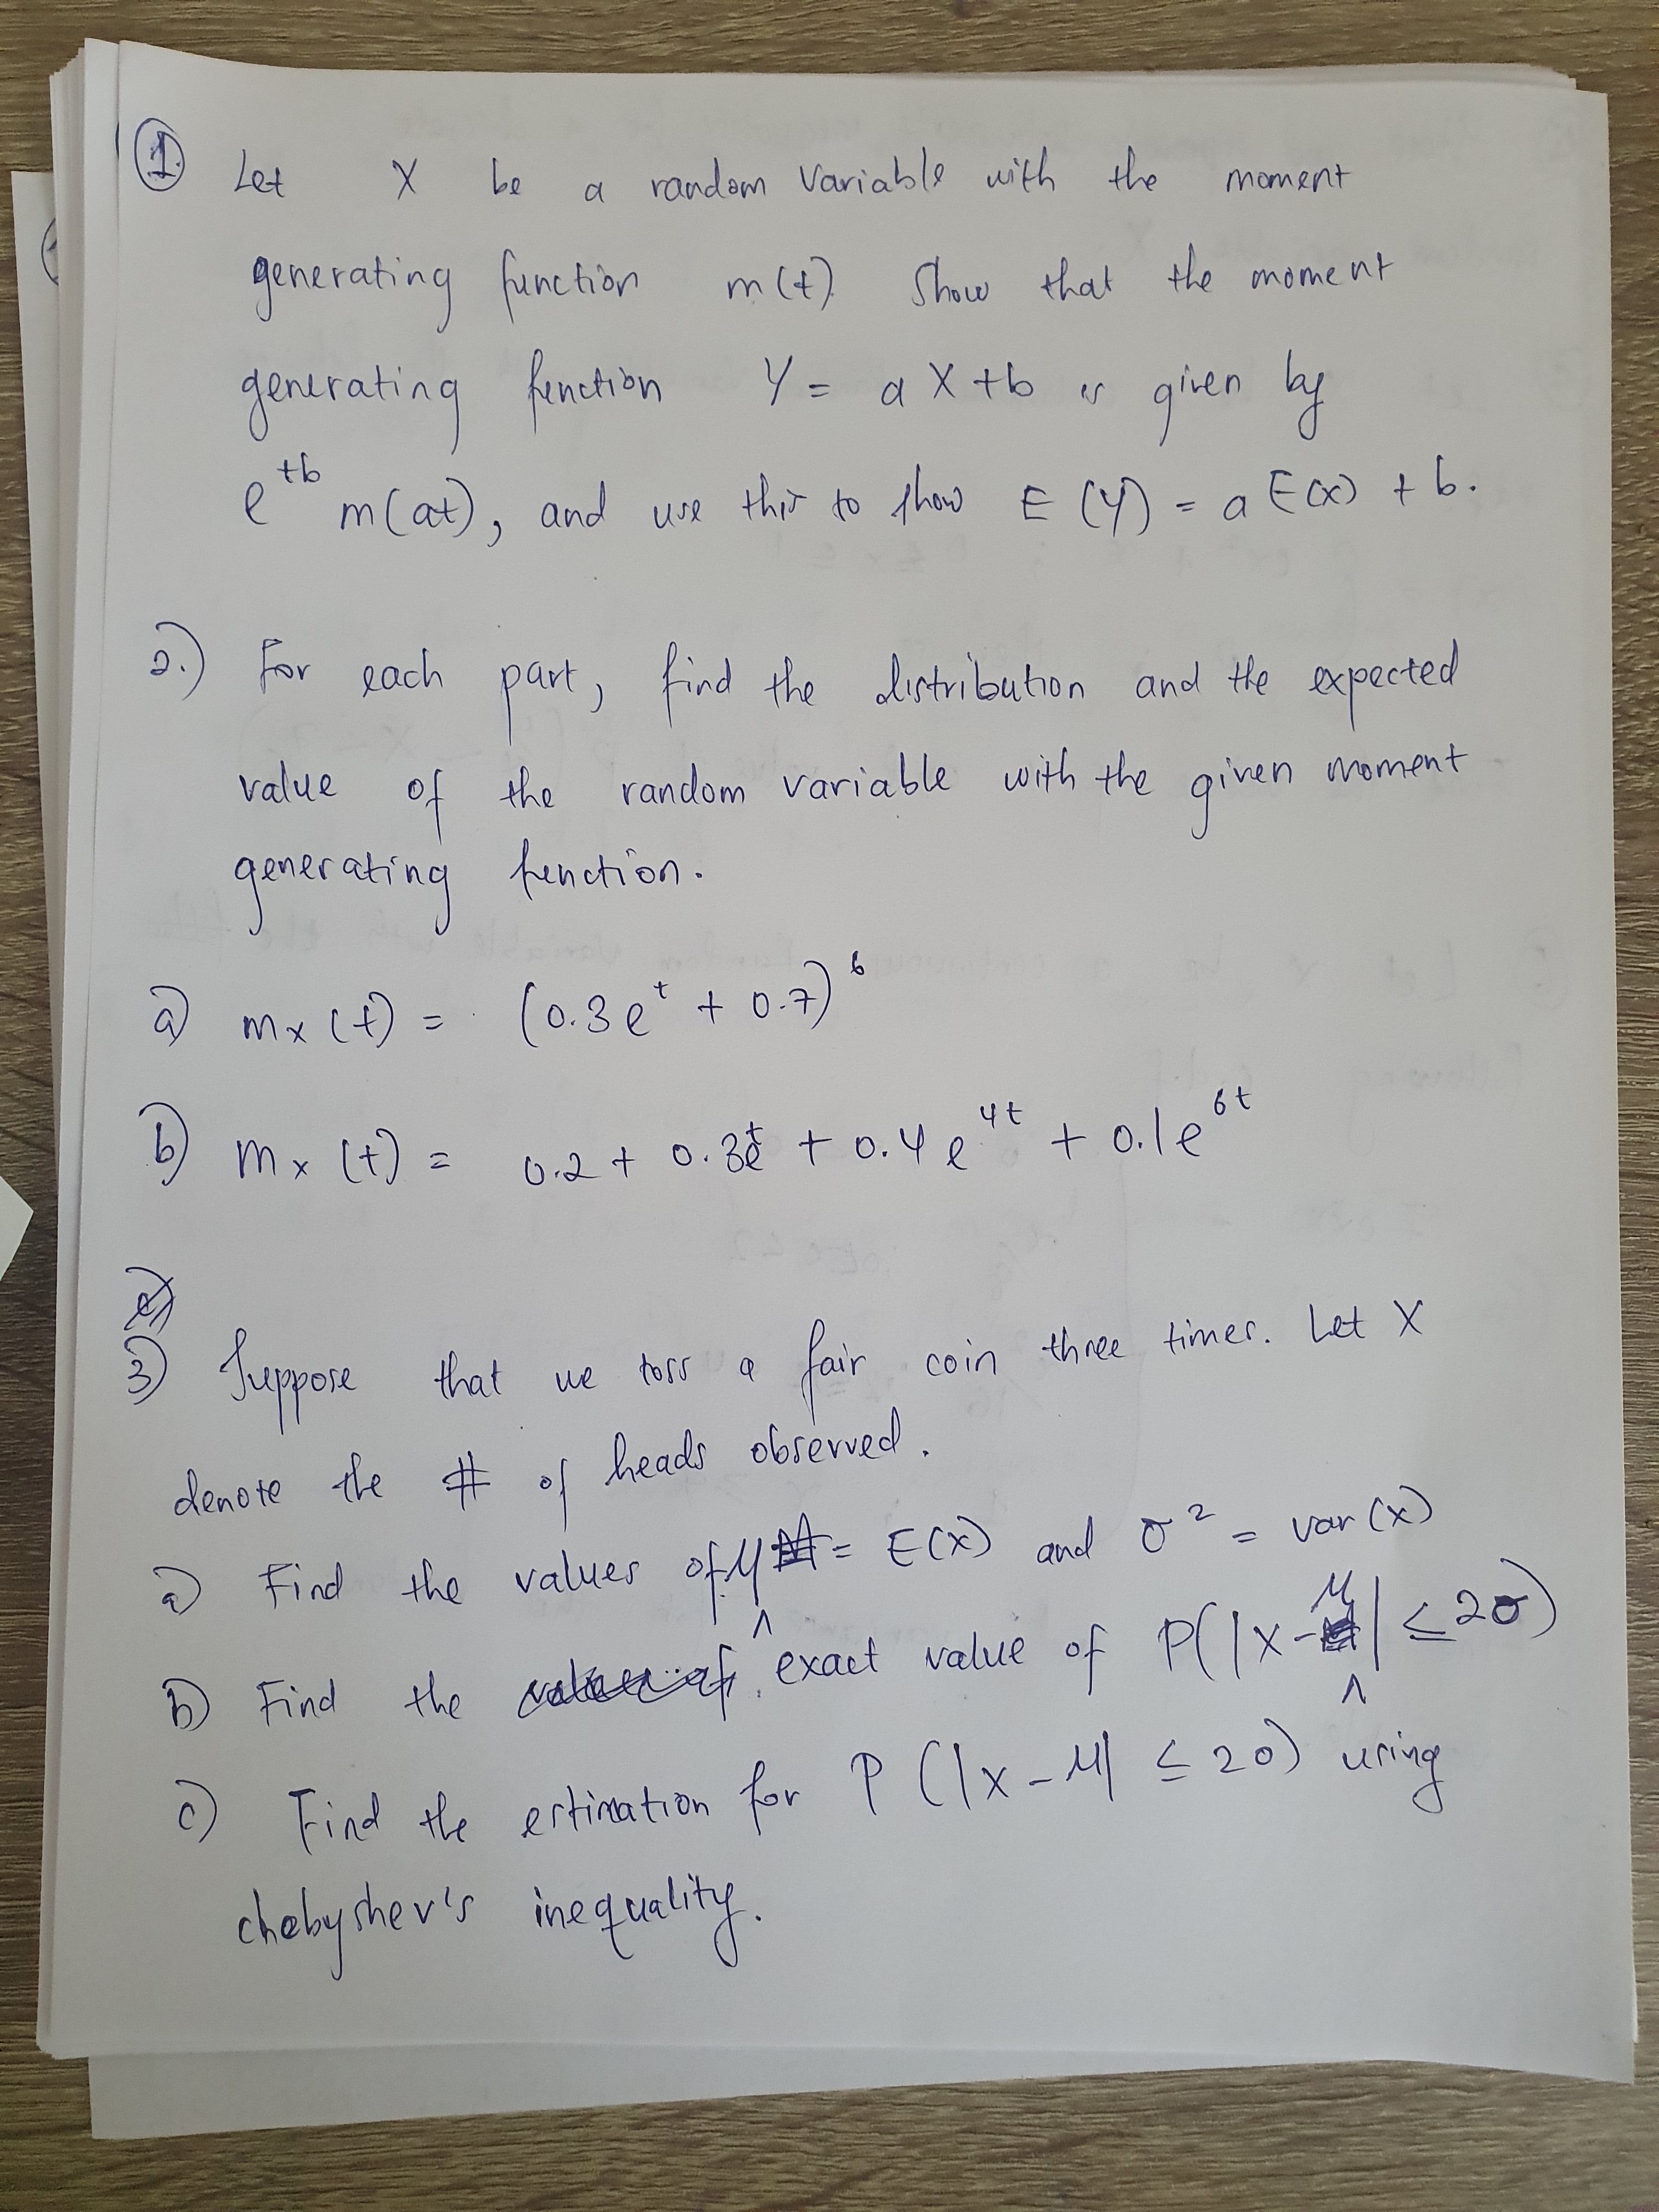 1. Let X be a random variable with the moment
generating function m(t). Show that the moment
generating function Y = aX+b is given by
e^{tb} m(at), and use this to show E(Y) = a E(X) + b.
2.) For each part, find the distribution and the expected
value of the random variable with the given moment
generating function.
a) m_X(t) = (0.3e^t + 0.7)^6
b) m_X(t) = 0.2 + 0.3e^t + 0.4e^{4t} + 0.1e^{6t}
3) Suppose that we toss a fair coin three times. Let X
denote the # of heads observed.
a) Find the values of μ = E(X) and σ² = var(X)
b) Find the exact value of P(|X-μ| ≤ 2σ)
c) Find the estimation for P(|X-μ| ≤ 2σ) using
chebyshev's inequality.